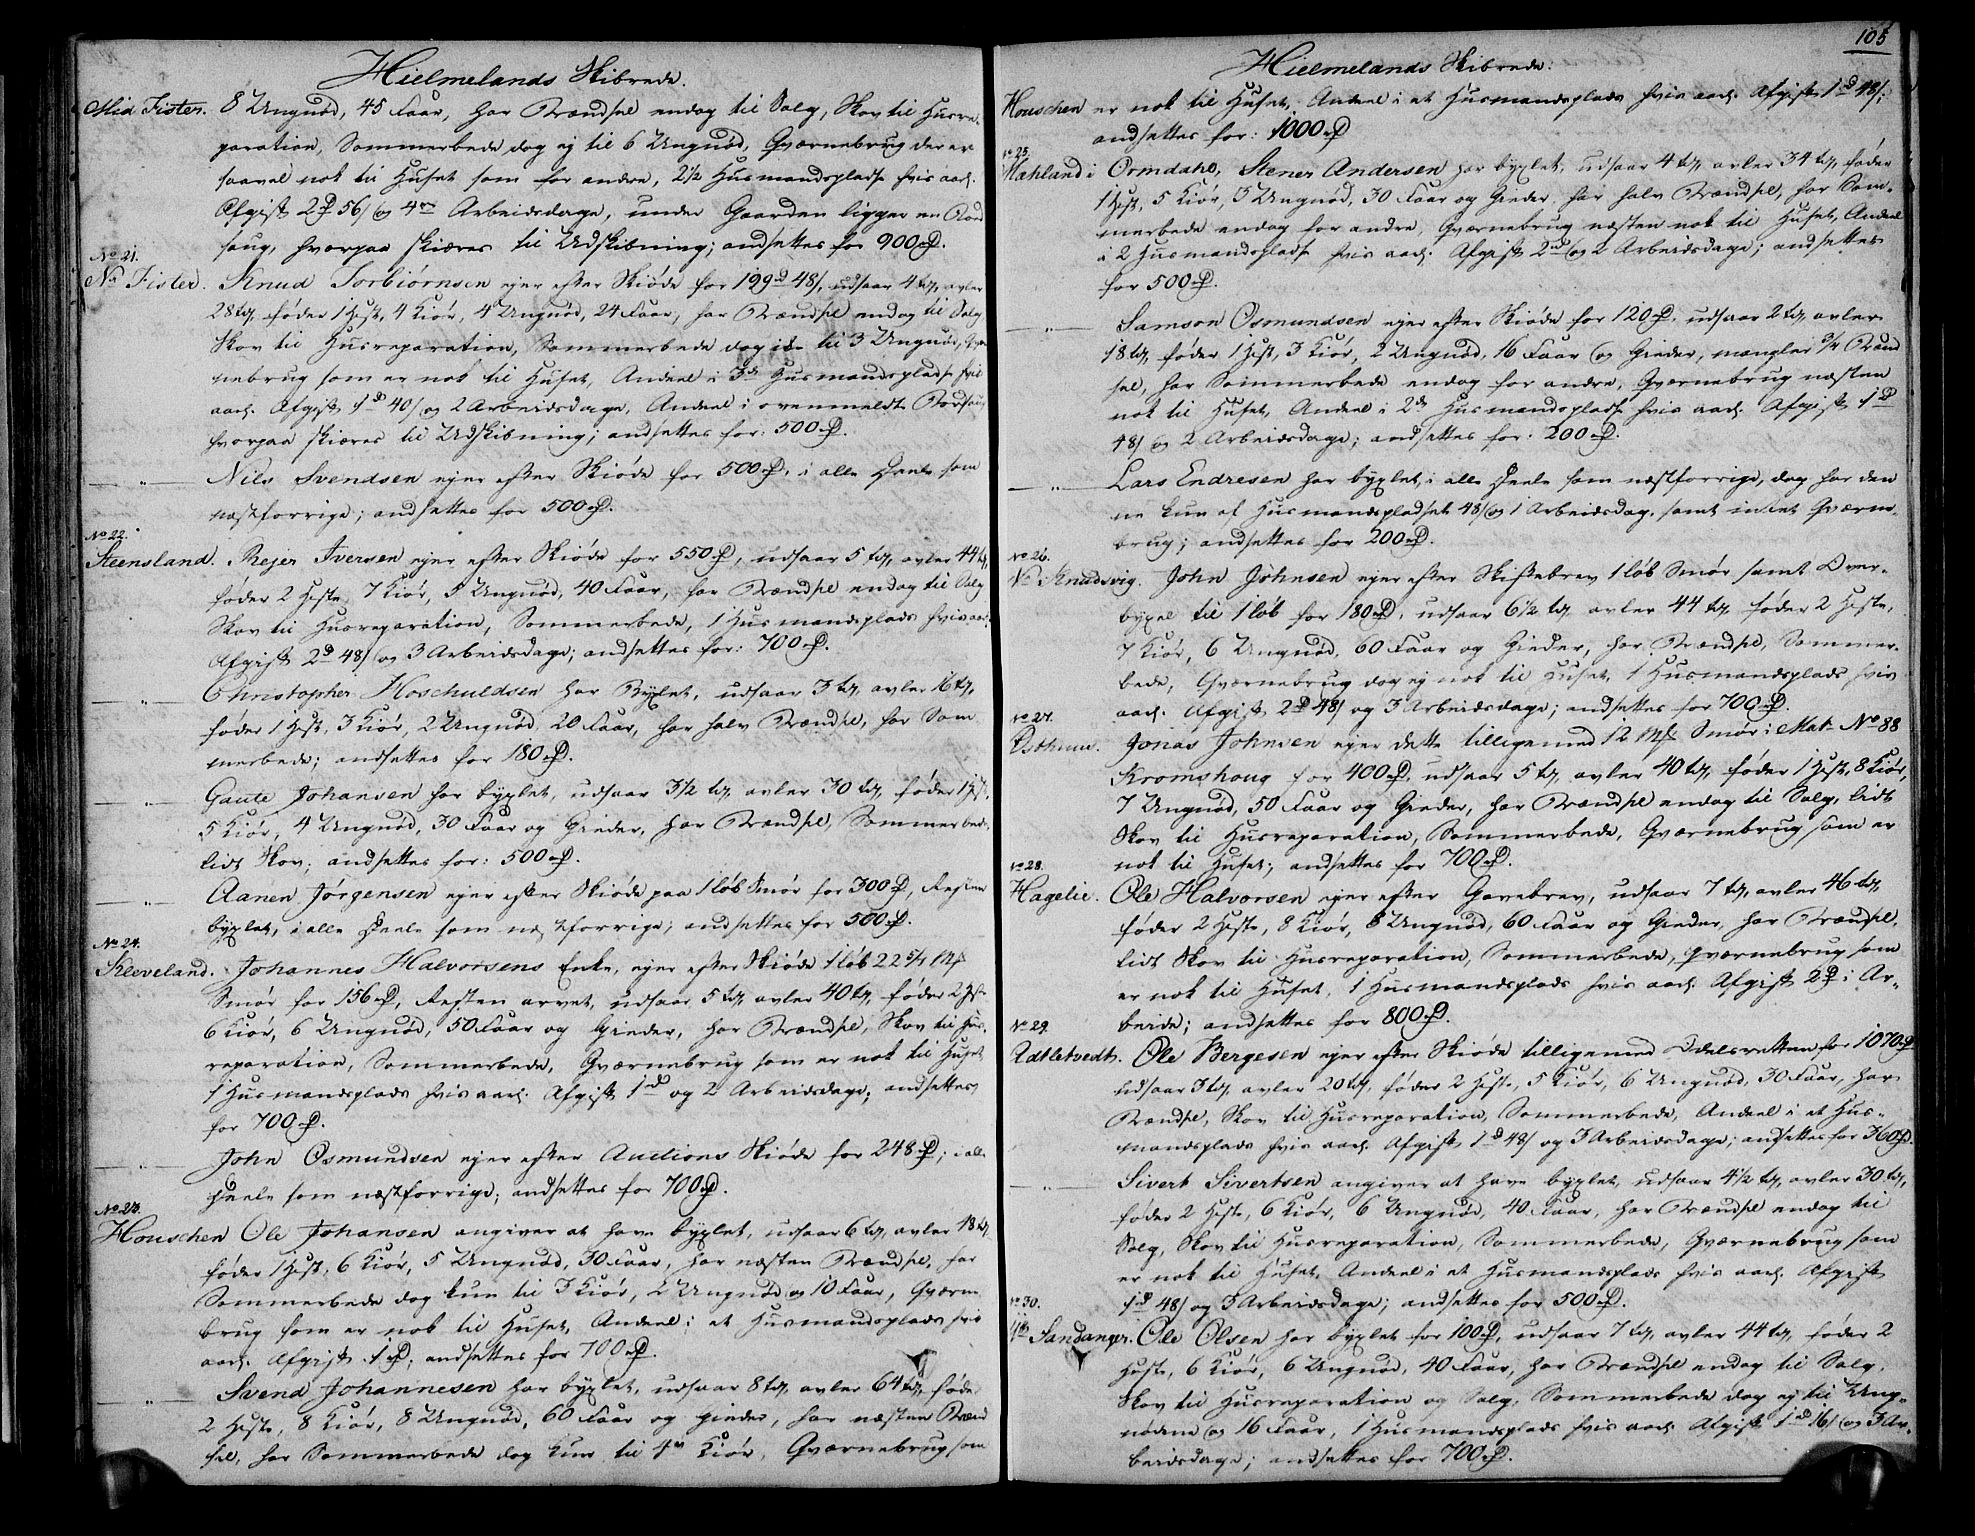 Hielmelands Skibrede.
Mid Fister. 8 Ungnød, 45 Faar, har Brændsel endog til Salg, Skov til Husre-
paration, Sommerbede dog ej til 6 Ungnød, Qværnebrug der er
saavel nok til Huset som for andre, 2½ Husmandsplads hvis aarl.
Afgift 2 56/ og 4re Arbeidsdage, under Gaarden ligger en Bord
saug, hvorpaa skiæres til Udskibning; ansettes for 900.
No 21.
Nr Fister. Knud Torbiørnsen ejer efter Skiøde for 199 48/, udsaar 4 tr, avler
28 tr, føder 1 Hest, 4 Kiør, 4 Ungnød, 24 Faar, har Brændsel endog til Salg
Skov til Husreparation, Sommerbede dog til 3 Ungnød, Qvær
nebrug som er nok til Huset, Andeel i 3de Husmandsplads hvis
aarl. Afgift 1 40/ og 2 Arbeidsdage, Andeel i ovenmeldte Bordsaug
hvorpaa skiæres til Udskibning; ansettes for: 500.
— „ — Nils Svendsen ejer efter Skiøde for 500, i alle Deele som
næstforrige; ansettes for 500.
No 22.
Steensland. Rejer Iversen ejer efter Skiøde for 550, udsaar 5 tr, avler 44 tr,
føder 2 Heste, 7 Kiør, 5 Ungnød, 40 Faar, har Brændsel endog til Salg
Skov til Husreparation, Sommerbede, 1 Husmandsplads hvis aarl.
Afgift 2 48/ og 3 Arbeidsdage; ansettes for: 700.
— „ — Christopher Hoschuldsen har Byxlet, udsaar 3 tr, avler 16 tr,
føder 1 Hest, 3 Kiør, 2 Ungnød, 20 Faar, har halv Brændsel, har Som
merbede; ansettes for 180.
— „ — Gaute Johansen har byxlet, udsaar 3½ tr, avler 30 tr, føder 1 Hest,
5 Kiør, 4 Ungnød, 30 Faar og Gieder, har Brændsel, Sommerbede,
lidt Skov; ansettes for: 500.
— „ — Aanen Jørgensen ejer efter Skiøde paa 1 løb Smør for 300, Resten
byxlet, i alle Deele som næstforrige; ansettes for 500.
No 24.
Kleveland. Johannes Halvorsens Enke, ejer efter Skiøde 1 løb 22
Smør for 156, Resten arvet, udsaar 5 tr, avler 40 tr, føder 2 Heste
6 Kiør, 6 Ungnød, 50 Faar og Gieder, har Brændsel, Skov til Hus-
reparation, Sommerbede, Qværnebrug som er nok til Huset
1 Husmandsplads hvis aarl. Afgift 1 og 2 Arbeidsdage, ansettes
for 700.
— „ — John Osmundsen ejer efter Auctions Skiøde for 248; i alle
Deele som næstforrige; ansettes for 700.
No 23.
Houschen Ole Johansen angiver at have byxlet, udsaar 6 tr, avler 48 tr
føder 1 Hest, 6 Kiør, 5 Ungnød, 30 Faar, har næsten Brændsel, har
Sommerbede dog kun til 3 Kiør, 2 Ungnød og 10 Faar, Qværne
brug som er nok til Huset, Andeel i et Husmandsplads hvis
aarl. Afgift 1; ansettes for 700.
— „ — Svend Johannesen har byxlet, udsaar 8 tr, avler 64 tr, føder
2 Heste, 8 Kiør, 8 Ungnød, 60 Faar og gieder, har næsten Brænd
sel, har Sommerbede dog kun til 4re Kiør, Qværnebrug som
105
Hielmelands Skibrede:
Houschen er nok til Huset, Andeel i et Husmandsplads hvis aarl. Afgift 1 48/;
ansettes for: 1000
No 25.
Mahland i Ormdahl, Stener Andersen har byxlet, udsaar 4 tr, avler 34 tr, føder
1 Hest, 5 Kiør, 3 Ungnød, 30 Faar og Gieder, har halv Brændsel, har Som-
merbede endog for andre, Qværnebrug næsten nok til Huset, Andeel
i 2 Husmandsplads hvis aarl. Afgift 2 og 2 Arbeidsdage; ansettes
for 500.
— „ — Samson Osmundsen ejer efter Skiøde for 120, udsaar 2 tr, avler
18 tr, føder 1 Hest, 3 Kiør, 2 Ungnød, 16 Faar og Gieder, mangler ¾ Brænd
sel, har Sommerbede endog for andre, Qværnebrug næsten
nok til Huset, Andeel i 2de Husmandsplads hvis aarl. Afgift 1
48/ og 2 Arbeidsdage; ansettes for: 200.
— „ — Lars Endresen har byxlet, i alle Deele som næstforrige, dog har den
ne kun af Husmandspladset 48/ og 1 Arbeidsdag, samt intet Qværne-
brug; ansettes for 200.
No 26.
Nr Knudsvig. John Johnsen ejer efter Skiftebrev 1 løb Smør samt Over-
byxel til 1 løb for 180, udsaar 6½ tr, avler 44 tr, føder 2 Heste,
7 Kiør, 6 Ungnød, 60 Faar og Gieder, har Brændsel, Sommer-
bede, Qværnebrug dog ej nok til Huset, 1 Husmandsplads hvis
aarl. Afgift 2 48/ og 3 Arbeidsdage; ansettes for 700.
No 27.
Østhuus. Jonas Johnsen ejer dette tilligemed 12 Smør i Mat. No 88
Kromshoug for 400, udsaar 5 tr, avler 40 tr, føder 1 Hest, 8 Kiør,
7 Ungnød, 50 Faar og Gieder, har Brændsel endog til Salg, lidt
Skov til Husreparation, Sommerbede, Qværnebrug som er
nok til Huset; ansettes for 700.
No 28.
Hagelie. Ole Halvorsen ejer efter Gavebrev, udsaar 7 tr, avler 46 tr,
føder 2 Heste, 8 Kiør, 8 Ungnød, 60 Faar og Gieder, har Brændsel,
lidt Skov til Husreparation, Sommerbede, qværnebrug som
er nok til Huset, 1 Husmandsplads hvis aarl. Afgift 2 i Ar-
beide; ansettes for 800.
No 29.
Adtletvedt. Ole Bergesen ejer efter Skiøde tilligemed Odelsretten for 1070
udsaar 3 tr, avler 20 tr, føder 2 Heste, 5 Kiør, 6 Ungnød, 30 Faar, har
Brændsel, Skov til Husreparation, Sommerbede, Andeel i et Hus-
mandsplads hvis aarl. Afgift 1 48/ og 3 Arbeidsdage; ansettes for 360.
— „ — Sivert Sivertsen angiver at have byxlet, udsaar 4½ tr, avler 30 tr,
føder 2 Heste, 6 Kiør, 6 Ungnød, 40 Faar, har Brændsel endog til
Salg, Skov til Husreparation, Sommerbede, Qværnebrug som
er nok til Huset, Andeel i et Husmandsplads hvis aarl. Afgift
1 48/ og 3 Arbeidsdage; ansettes for 500.
No 30.
Sandanger. Ole Olsen har byxlet for 100, udsaar 7 tr, avler 44 tr, føder 2
Heste, 6 Kiør, 6 Ungnød, 40 Faar, har Brændsel endog til Salg,
Skov til Husreparation og Salg, Sommerbede dog ej til Ung-
nødene og 16 Faar, 1 Husmandsplads hvis aarl. Afgift 1 16/ og 3 Ar-
beidsdage; ansettes for 700.